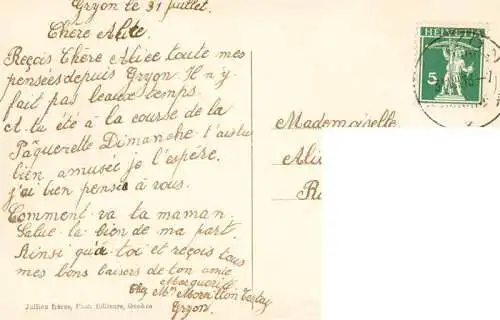 Gryon le 31 juillet.
Chère Alice
Reçois Chère Alice toute mes
pensées depuis Gryon. Il n'y
fait pas beaux temps.
A tu été à la course de la
Pâquerette Dimanche t'aistu
bien amusée je l'espére.
j'ai bien pensée à vous.
Comment va ta maman.
Salue la bien de ma part.
Ainsi qu'à toi et reçois tous
mes bons baisers de ton amie
Marguerite
Chez Mme
Gryon.
Jullien frères, Phot. Editeurs, Genève
HELVETIA
5
Mademoiselle